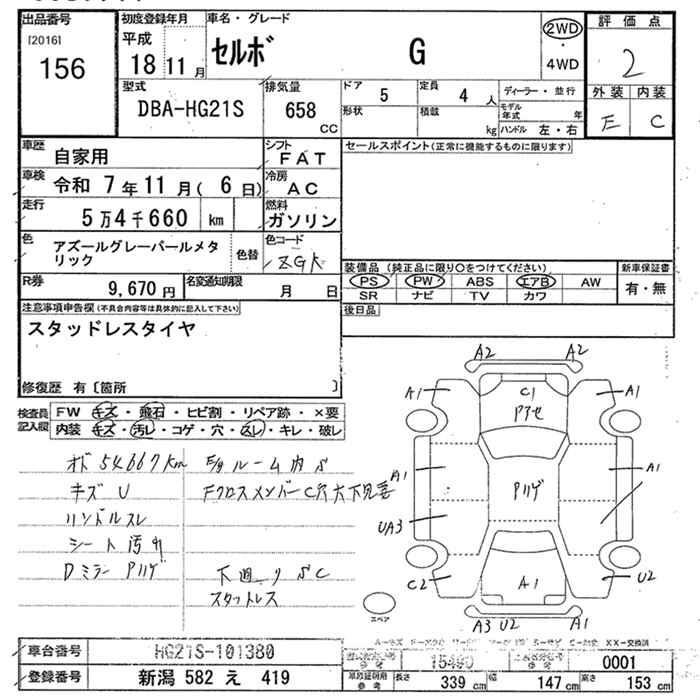 出品番号
[2016]
156
初度登録年月
平成
18 11 月
車名・グレード
セルボ G
2WD
・
4WD
評価点
2
外装 内装
E C
型式
DBA-HG21S
排気量
658 CC
ドア 5
定員 4 人
形状
積載 kg
ディーラー・並行
モデル年式 年
ハンドル 左・右
車歴 自家用
シフト FAT
セールスポイント(正常に機能するものに限ります)
車検 令和 7年 11月( 6日)
冷房 AC
走行 5万4千660 km
燃料 ガソリン
色 アズールグレーパールメタリック
色替
色コード ZGK
R券 9,670 円
名変通知期限 月 日
装備品(純正品に限り○をつけてください)
PS PW ABS エアB AW
SR ナビ TV カワ
新車保証書
有・無
後日品
注意事項申告欄(不具合内容等は具体的に記入して下さい)
スタッドレスタイヤ
修復歴 有〔箇所 〕
検査員記入欄
FW キズ・飛石・ヒビ割・リペア跡・×要
内装 キズ・汚レ・コゲ・穴・スレ・キレ・破レ
オド54667km
キズU
ハンドルスレ
シート汚レ
Dミラー Pハゲ
E/gルーム内S
FクロスメンバーC穴大下見要
下廻りSC
スタットレス
A2 A2
A1 C1 A1
Pアセ
A1 Pハゲ A1
UA3
C2 A1 U2
A3 U2 A1
スペア
車台番号 HG21S-101380
登録番号 新潟 582 え 419
0001
長さ 339 cm
幅 147 cm
高さ 153 cm